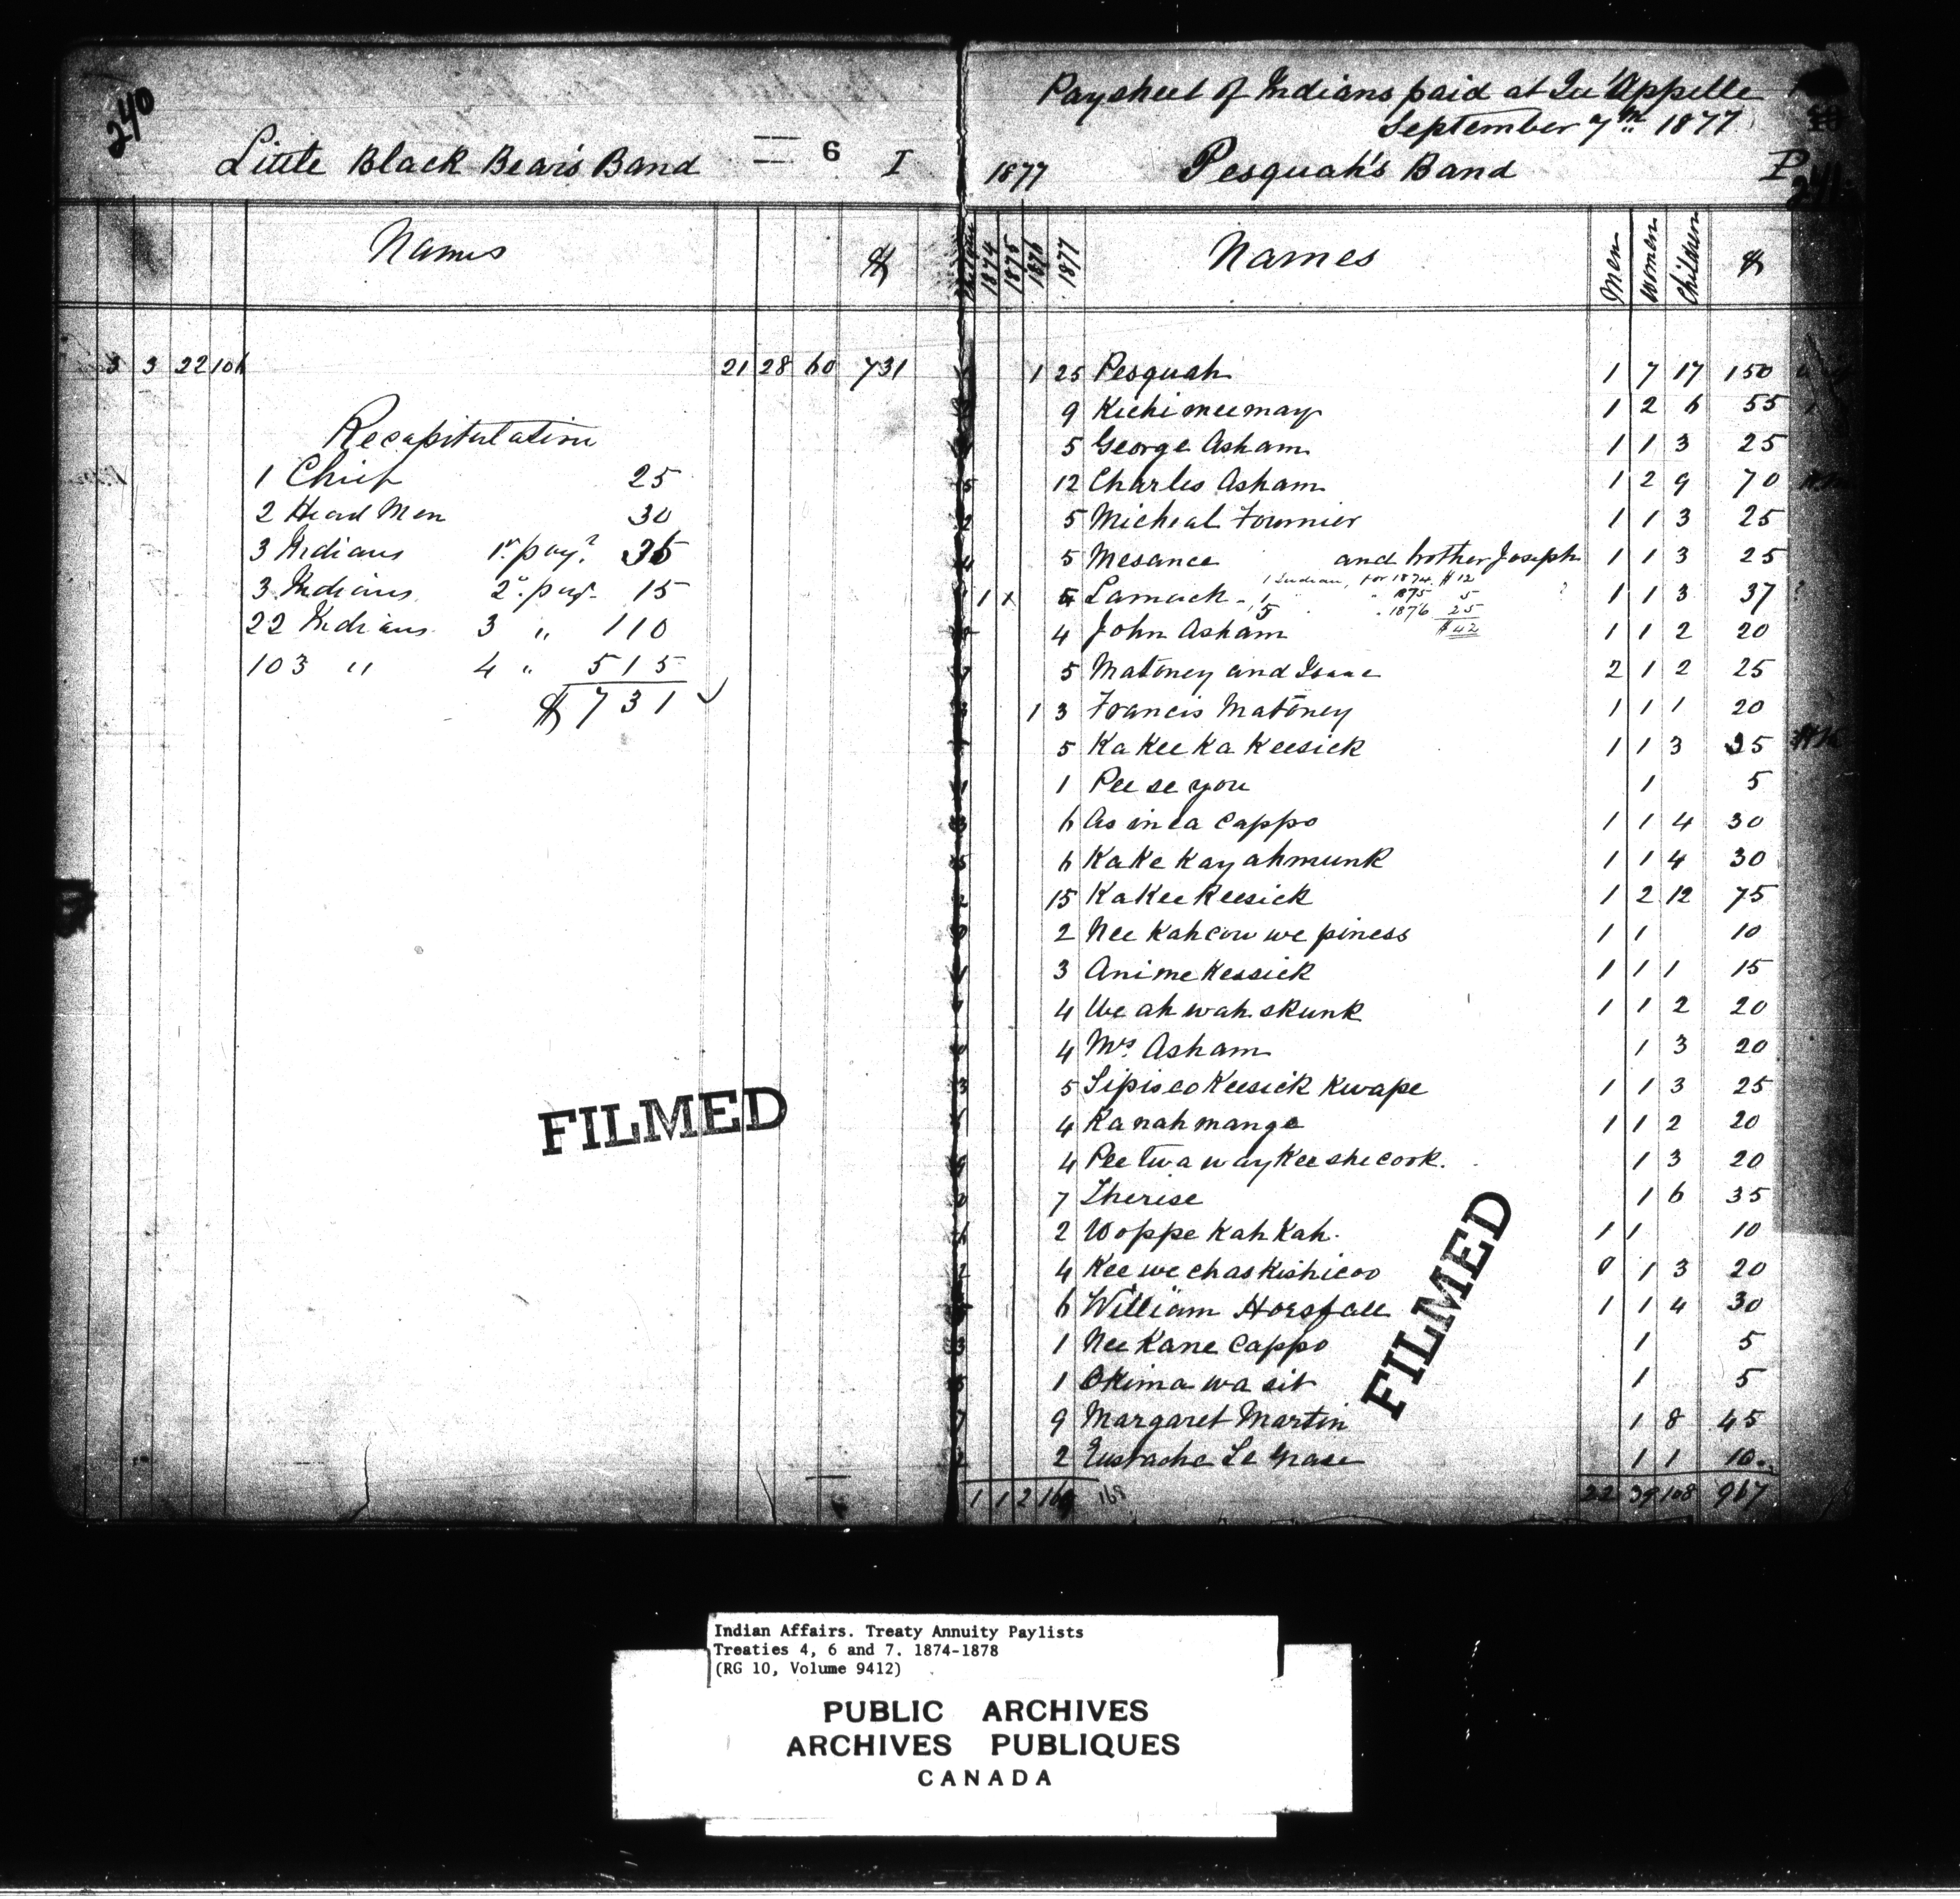 240
Little Black Bear's Band 6 I
Names $
3 3 22 106 21 28 60 731
Recapitulation
1 Chief 25
2 Head Men 30
3 Indians 1st pay. 36
3 Indians 2d pay. 15
22 Indians 3 " 110
103 " 4 " 515
$731 ✓
FILMED
Paysheet of Indians paid at Qu'Appelle
September 7th 1877
1877 Pesquah's Band P
241
1874 1875 1876 1877 Names Men Women Children $
1 25 Pesquah 1 7 17 150
9 Kichimeemay 1 2 6 55
5 George Asham 1 1 3 25
12 Charles Asham 1 2 9 70
5 Micheal Fournier 1 1 3 25
5 Mesance and brother Joseph 1 1 3 25
1 Indian, for 1874 $12
1 1 5 Lamack - 1 " " 1875 5 1 1 3 37 ?
5 " 1876 25
4 John Asham $42 1 1 2 20
5 Matoney and Isaac 2 1 2 25
1 3 Francis Matoney 1 1 1 20
5 Ka Kee Ka Keesick 1 1 3 25
1 Pee se you 1 5
6 As in ea Cappo 1 1 4 30
6 Ka Ke Kay ahmunk 1 1 4 30
15 Ka Kee Keesick 1 2 12 75
2 Nee Kah cow we piness 1 1 10
3 Anime Kessick 1 1 1 15
4 We ah wah skunk 1 1 2 20
4 Mrs. Asham 1 3 20
5 Sipisco Keesick Kwape 1 1 3 25
4 Ka nah mange 1 1 2 20
4 Pee twa way Kee she cook. 1 3 20
7 Therise 1 6 35
2 Woppe Kah Kah. 1 1 10
4 Kee we chas Kishicoo 0 1 3 20
6 William Horsfall 1 1 4 30
1 Nee Kane Cappo 1 5
1 Okima wa sit 1 5
9 Margaret Martin 1 8 45
2 Eustache Le Grase 1 1 10
1 1 2 169 168 22 39 108 967
FILMED
Indian Affairs. Treaty Annuity Paylists
Treaties 4, 6 and 7. 1874-1878
(RG 10, Volume 9412)
PUBLIC ARCHIVES
ARCHIVES PUBLIQUES
CANADA